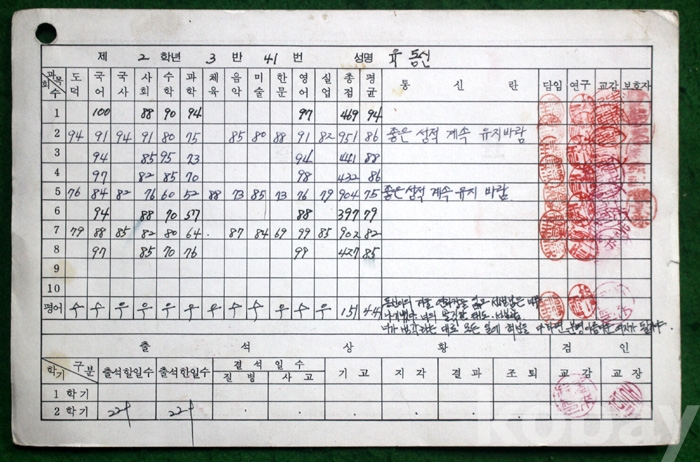 제 2 학년 3 반 41 번 성명 유
과목 회수 도덕 국어 국사 사회 수학 과학 체육 음악 미술 한문 영어 실업 총점 평균 통 신 란 담임 연구 교감 보호자
1 100 88 90 94 97 469 94
2 94 91 94 91 80 75 85 80 88 91 82 951 86 좋은 성적 계속 유지바람
3 94 85 95 73 94 441 88
4 97 82 85 70 98 432 86
5 76 84 82 76 60 52 88 73 85 73 76 79 904 75 좋은 성적 계속 유지 바람
6 94 88 90 37 88 397 79
7 79 88 85 82 80 64 87 84 69 99 85 902 82
8 97 85 70 76 99 427 85
9
10
평어 수 수 우 수 수 우 우 수 수 우 수 우 151
출 석 상 황 검 인
학기 구분 출석할일수 출석한일수 결석일수 기 고 지 각 결 과 조 퇴 교 감 교 장
질 병 사 고
1 학기
2 학기 224 224
kobay